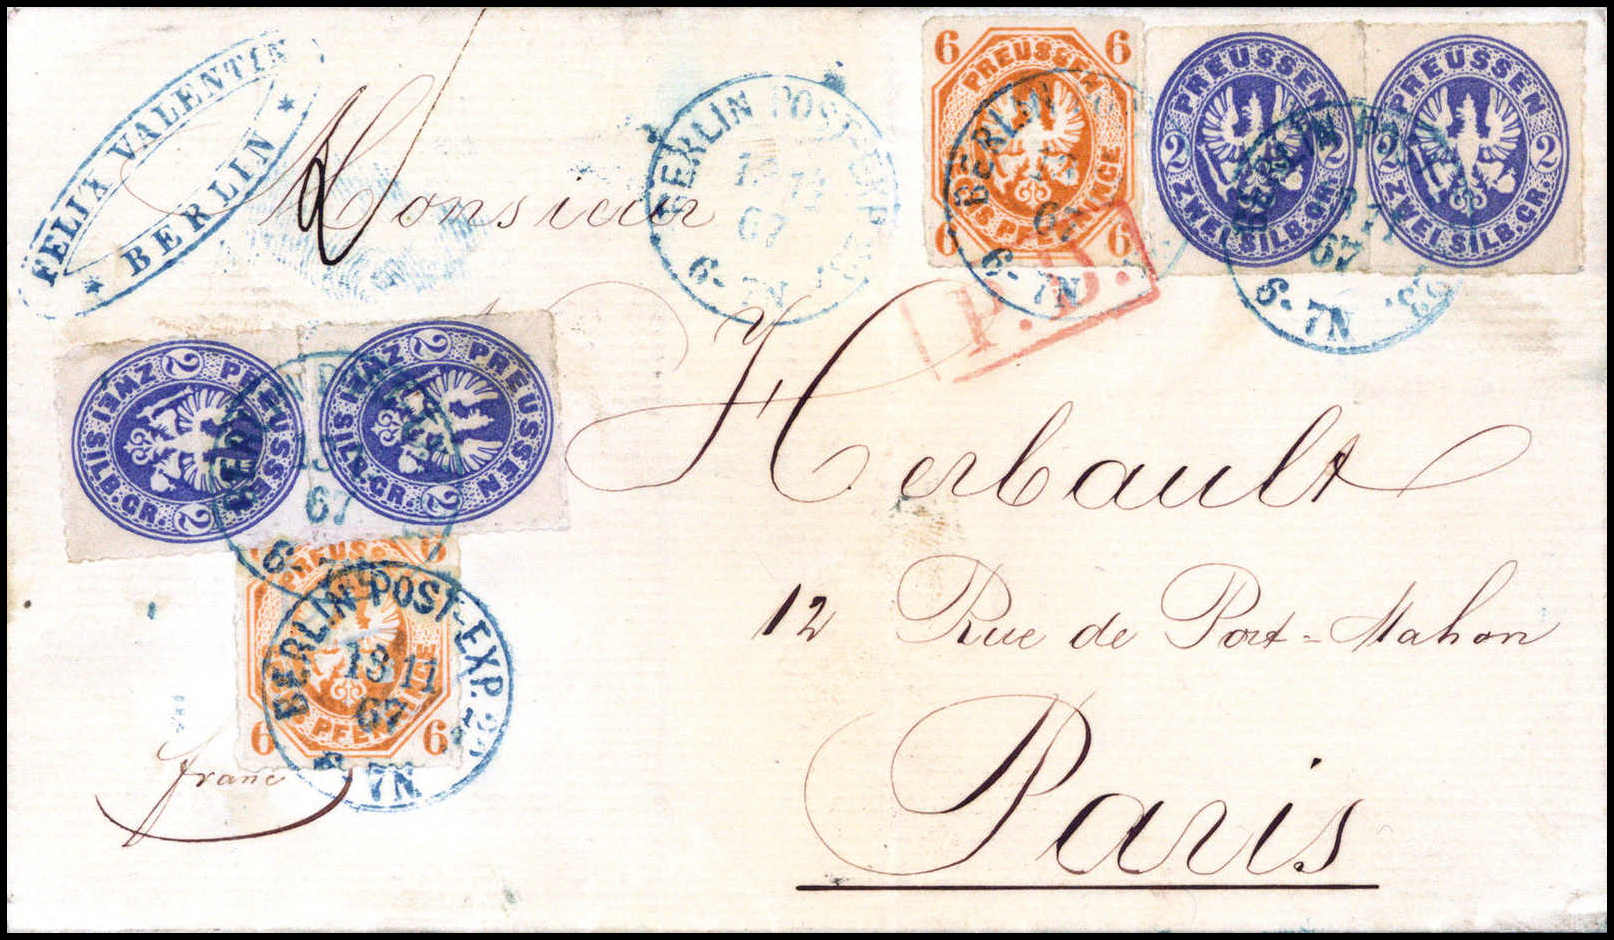 FELIX VALENTIN
* BERLIN *
Monsieur
Herbault
12 Rue de Port-Mahon
Paris
franc
P.D.
BERLIN POST-EXP.
67
6-7N
6 6
PREUSSEN
PFENNINGE
6 6
BERLIN
67
6-7N
PREUSSEN
2 2
ZWEI SILB. GR.
PREUSSEN
2 2
ZWEI SILB. GR.
67
6-7N
PREUSSEN
2 2
ZWEI SILB. GR.
PREUSSEN
2 2
ZWEI SILB. GR.
67
PREUSS
6
PFENN
6 6
BERLIN POST-EXP.
13 11
67
7N